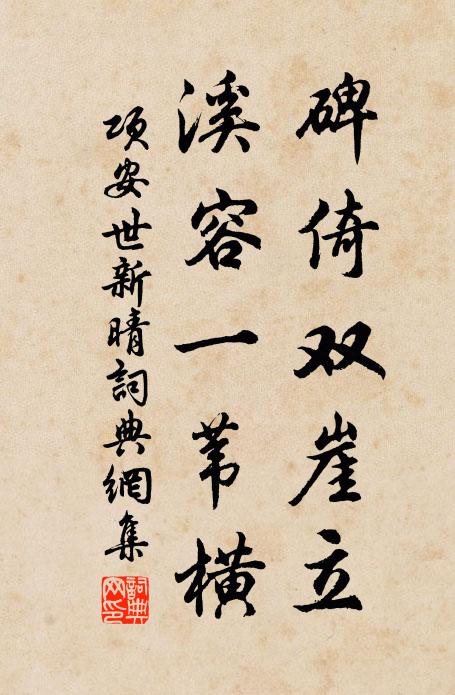 碑倚双崖立
溪容一苇横
项安世新晴詞典網集
詞典网印